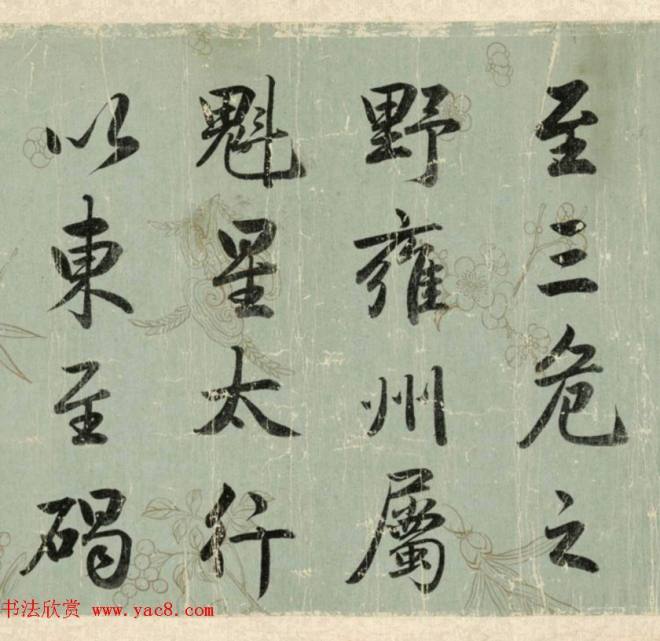 至三危之
野雍州屬
魁星太行
以東至碣
书法欣赏 www.yac8.com